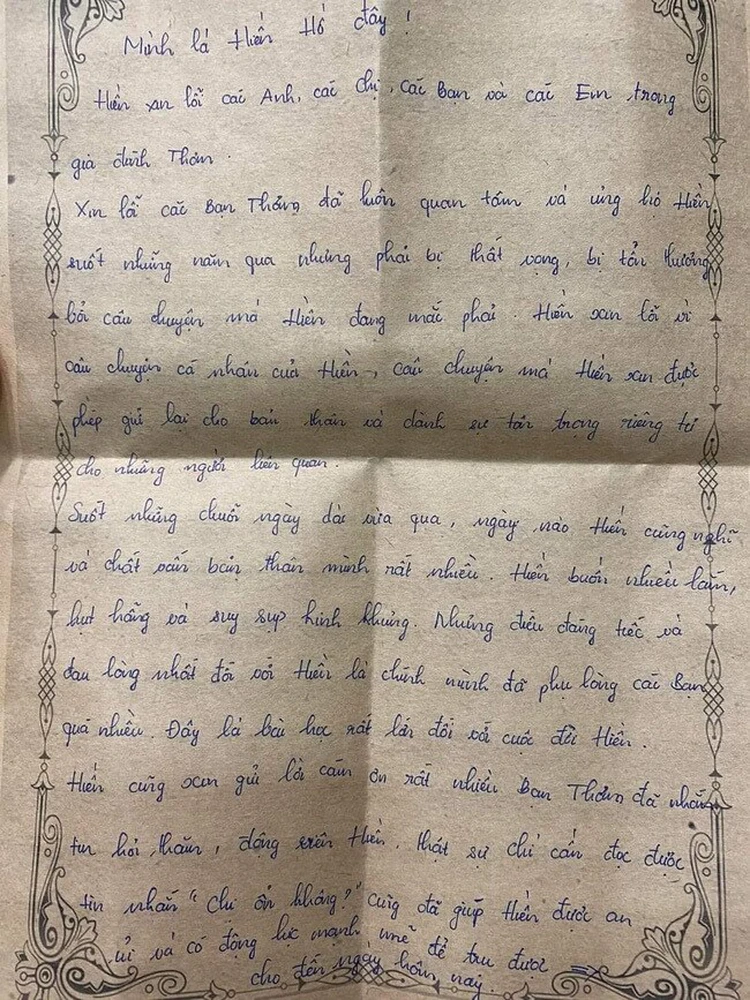 Mình là Hiền Hồ đây !
Hiền xin lỗi các Anh, các chị, các Bạn và các Em trong
gia đình Thơm .
Xin lỗi các Bạn Thơm đã luôn quan tâm và ủng hộ Hiền
suốt những năm qua nhưng phải bị thất vọng, bị tổn thương
bởi câu chuyện mà Hiền đang mắc phải . Hiền xin lỗi vì
câu chuyện cá nhân của Hiền, câu chuyện mà Hiền xin được
phép giữ lại cho bản thân và dành sự tôn trọng riêng tư
cho những người liên quan .
Suốt những chuỗi ngày dài vừa qua , ngày nào Hiền cũng nghĩ
và chất vấn bản thân mình rất nhiều . Hiền buồn nhiều lắm,
hụt hẫng và suy sụp kinh khủng. Nhưng điều đáng tiếc và
đau lòng nhất đối với Hiền là chính mình đã phụ lòng các Bạn
quá nhiều. Đây là bài học rất lớn đối với cuộc đời Hiền .
Hiền cũng xin gửi lời cám ơn rất nhiều Bạn Thơm đã nhắn
tin hỏi thăm , động viên Hiền . thật sự chỉ cần đọc được
tin nhắn "Chị ổn không?" cũng đã giúp Hiền được an
ủi và có động lực mạnh mẽ để trụ được =>
cho đến ngày hôm nay .